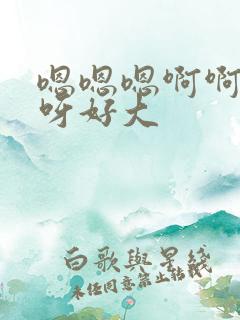 嗯嗯嗯啊啊
呀好大
白歌與星綫
未任同意禁止轉載